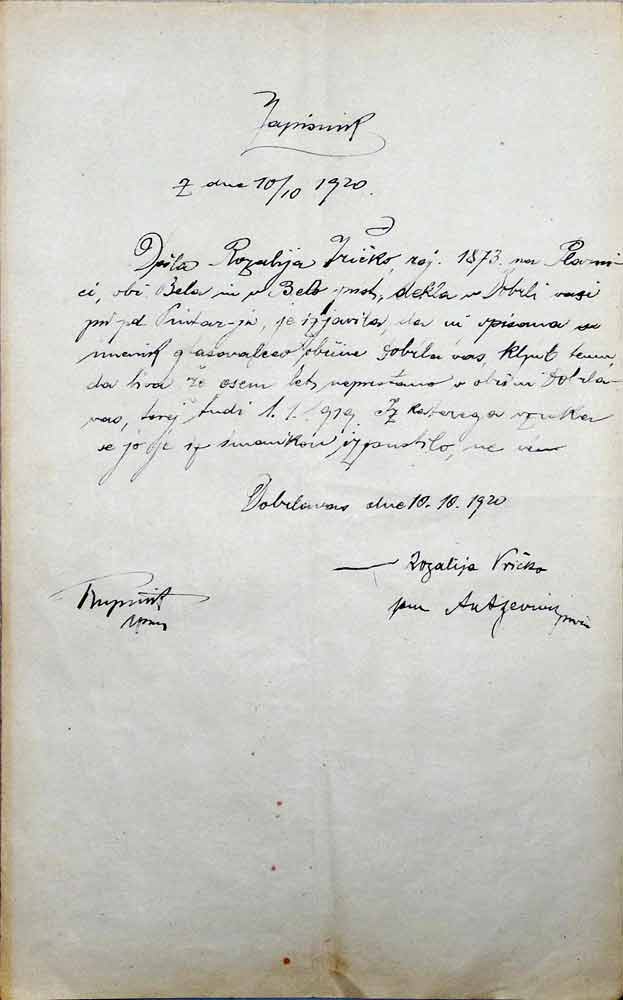 Zapisnik
z dne 10/10 1920.
Došla Rozalija Vričko, roj. 1873. na
ci, obč. Bela in v Belo prist, dekla v Dobrli vasi
pri pd. je izjavila, da ni vpisana v
imenik glasovalcev občine Dobrla vas, kljub temu,
da biva že osem let neprestano v občini Dobrla-
vas, torej tudi 1. 1. 1919. Iz katerega vzroka
se jo je iz imenikov izpustilo, ne ve
Dobrlavas dne 10. 10. 1920
Rozalija Vričko